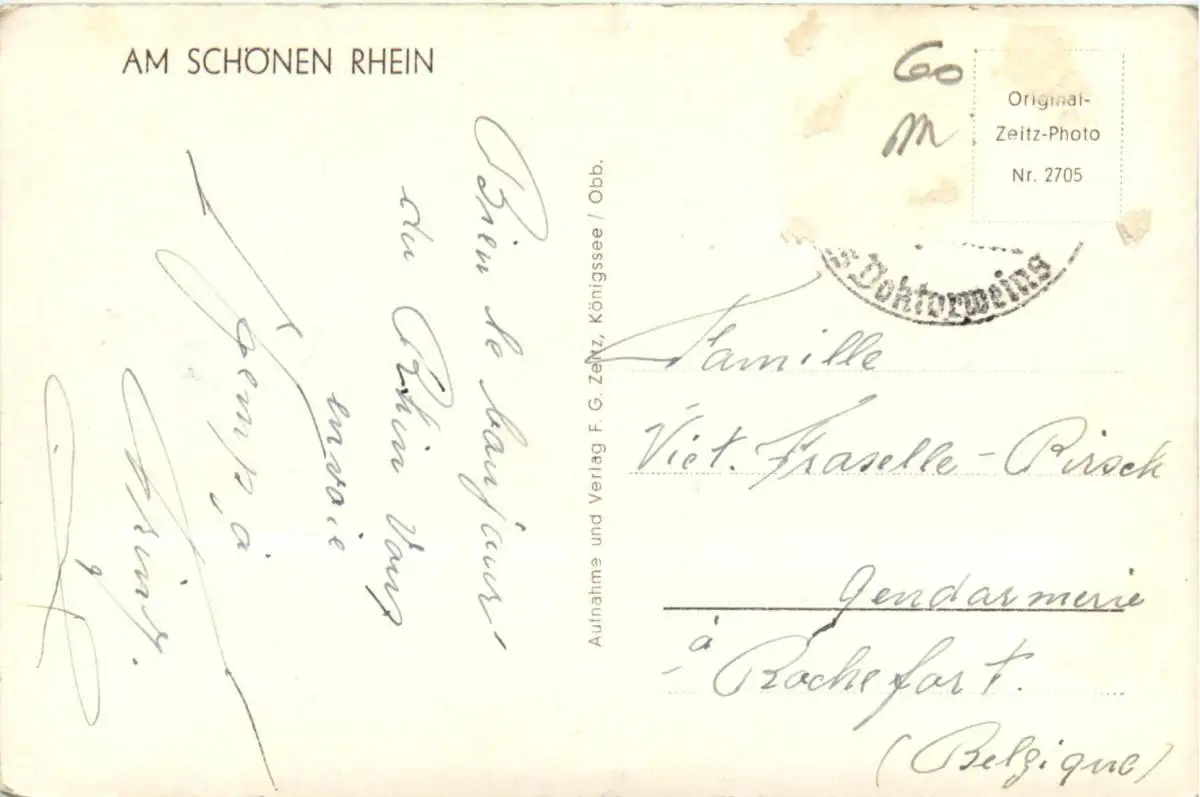 AM SCHÖNEN RHEIN
Bien le bonjour
du Rhin Vous
envoie
Aufnahme und Verlag F. G. Zeitz, Königssee / Obb.
60
m
Original-
Zeitz-Photo
Nr. 2705
Doktorweins
Famille
Vict. Fraselle - Pirsch
Gendarmerie
à
Rochefort.
(Belgique)